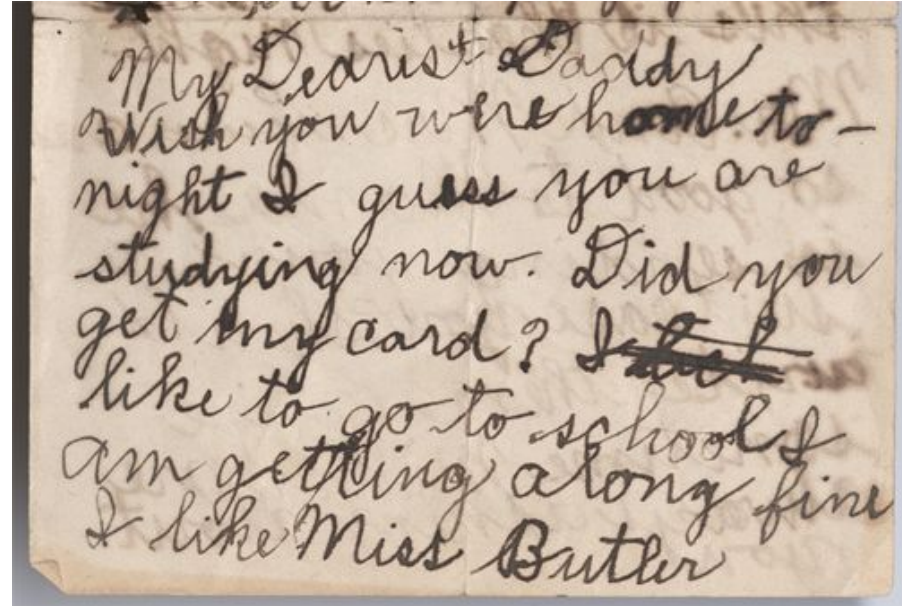 My Dearist Daddy
Wish you were home to-
night I guess you are
studying now. Did you
get my card? I
like to go to school I
am getting along fine
I like Miss Butler